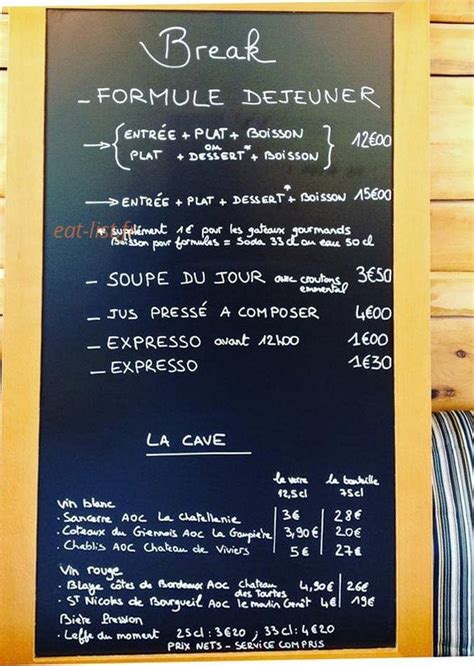 Break
- FORMULE DEJEUNER
→ { ENTRÉE + PLAT + BOISSON
ou
PLAT + DESSERT* + BOISSON } 12€00
→ ENTRÉE + PLAT + DESSERT* + BOISSON 15€00
* supplément 1€ pour les gateaux gourmands
Boisson pour formules = Soda 33 cl ou eau 50 cl
eat-list.fr
- SOUPE DU JOUR avec croutons 3€50
emmental
- JUS PRESSÉ A COMPOSER 4€00
- EXPRESSO avant 12H00 1€00
- EXPRESSO 1€30
LA CAVE
le verre la bouteille
12,5cl 75cl
Vin blanc
. Sancerre AOC La Chatellenie 3€ 28€
. Coteaux du Giennois AOC La Gaupière 3,90€ 20€
. Chablis AOC Chateau de Viviers 5€ 27€
Vin rouge
. Blaye côtes de Bordeaux AOC Chateau 4,90€ 26€
des Tourtes
. ST Nicolas de Bourgueil AOC le moulin Genêt 4€ 19€
Bière Pression
. Leffe du moment 25cl : 3€20, 33cl : 4€20
PRIX NETS - SERVICE COMPRIS